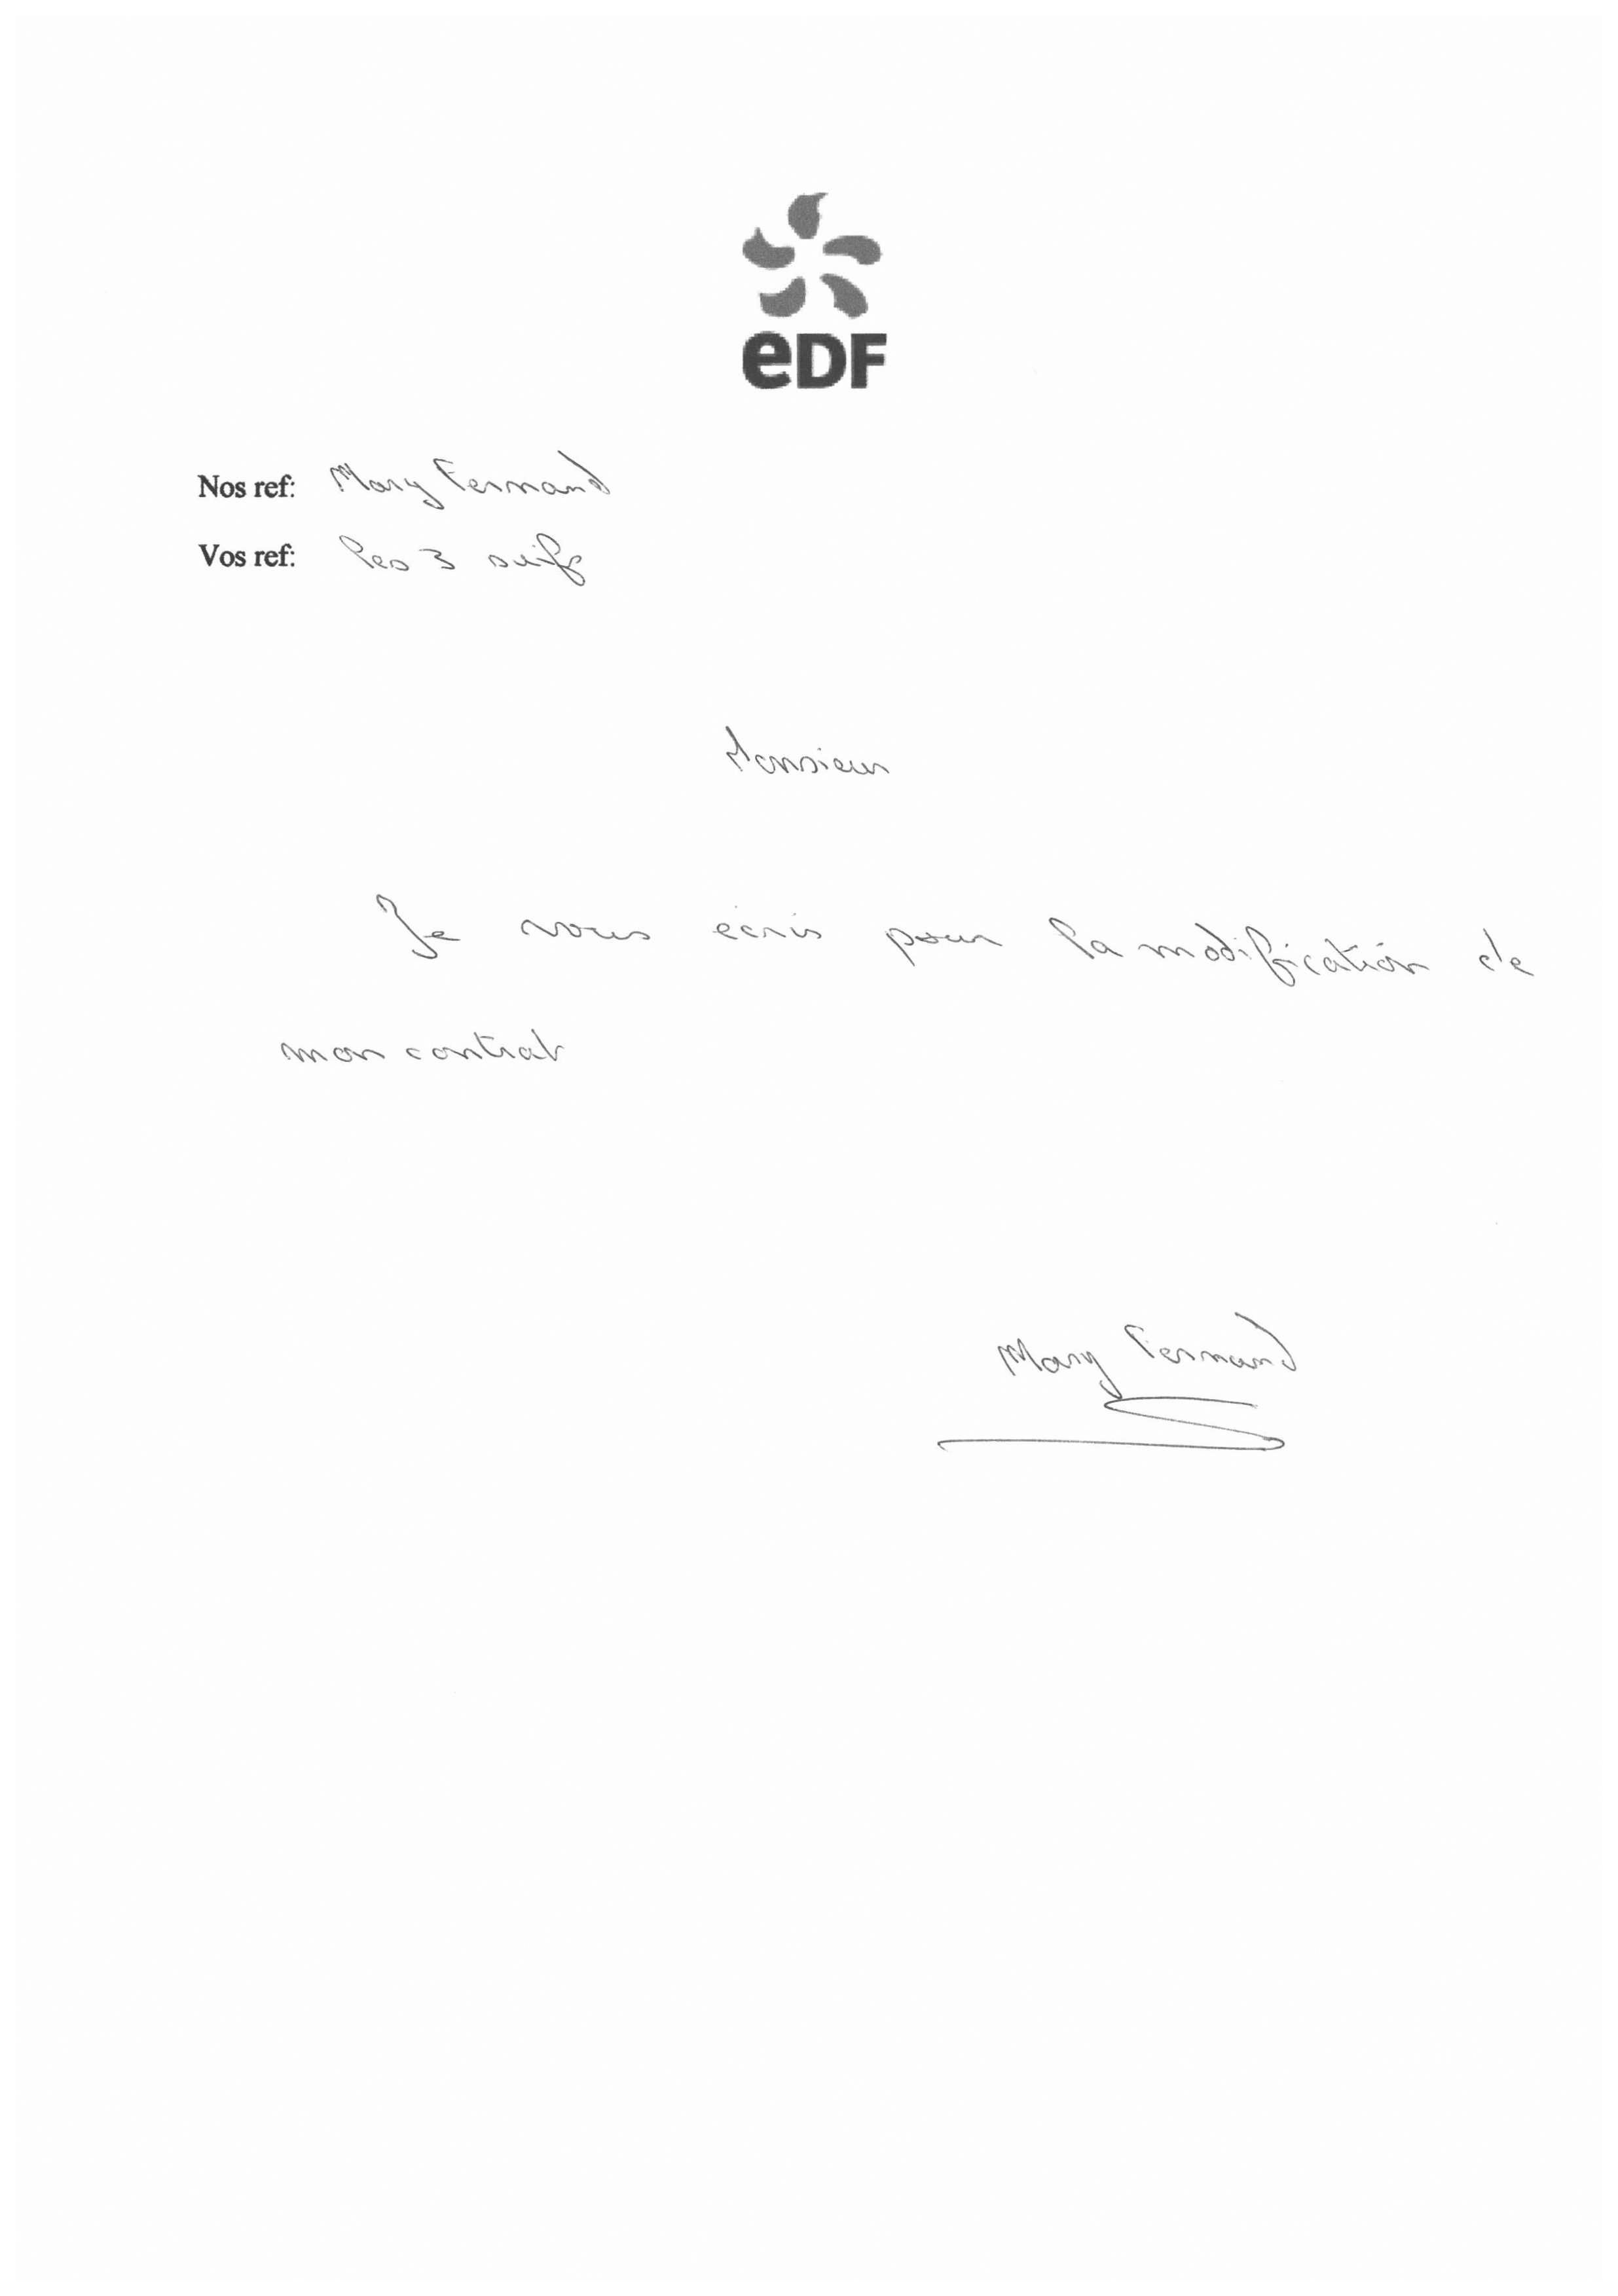 eDF
Nos ref: Mary Fernand
Vos ref: les 3 suifs
Monsieur
Je vous écris pour la modification de
mon contrat
Mary Fernand